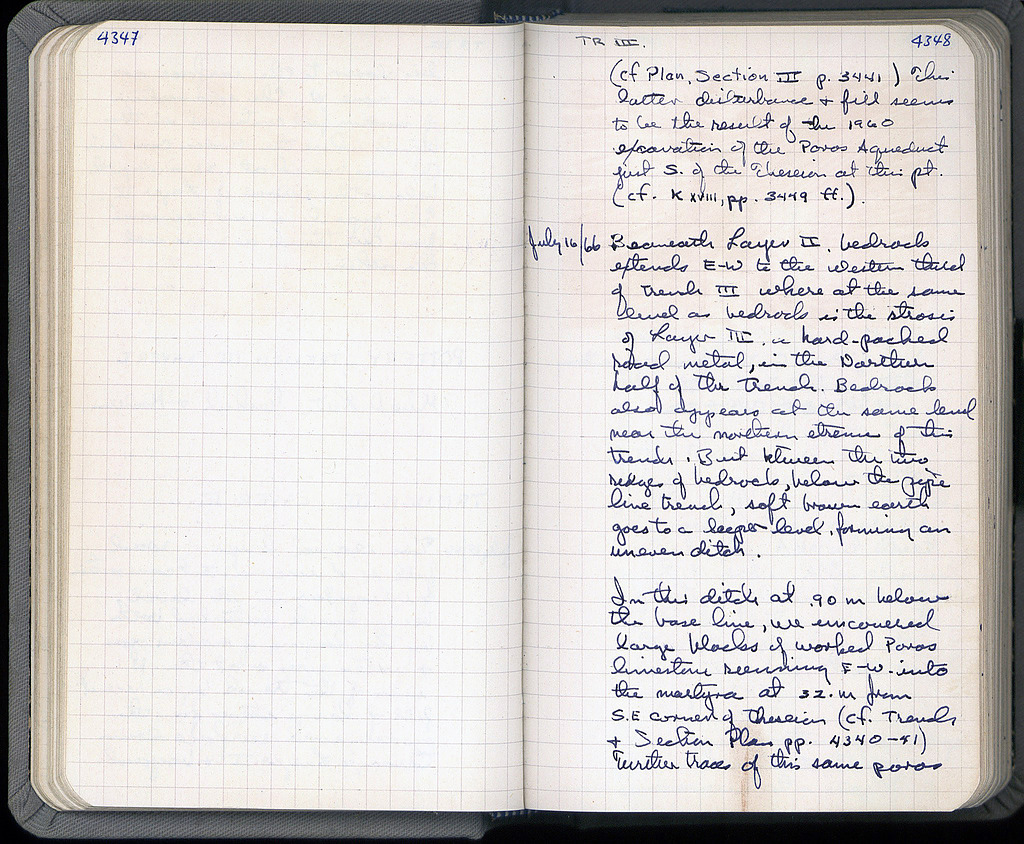 4347
TR III.
4348
(cf Plan, Section III p. 3441) This
latter disturbance + fill seems
to be the result of the 1960
excavation of the Poros Aqueduct
just S. of the Theseion at this pt.
(cf. K XVIII, pp. 3449 ff.).
July 16/66 Beaneath Layer II, bedrock
extends E-W to the western third
of trench III where at the same
level as bedrock is the strosis
of Layer III, a hard-packed
road metal, in the Northern
half of the trench. Bedrock
also appears at the same level
near the northern etreme of this
trench. But btween the two
redges of bedrock, below the pipe
line trench, soft brown earth
goes to a deeper level, forming an
uneven ditch.
In this ditch at .90 m below
the base line, we uncovered
large blocks of worked Poros
limestone running E-W. into
the martyra at 32. m from
S.E corner of Theseion (cf. Trench
+ Section Plan pp. 4340-41)
Further traces of this same poros